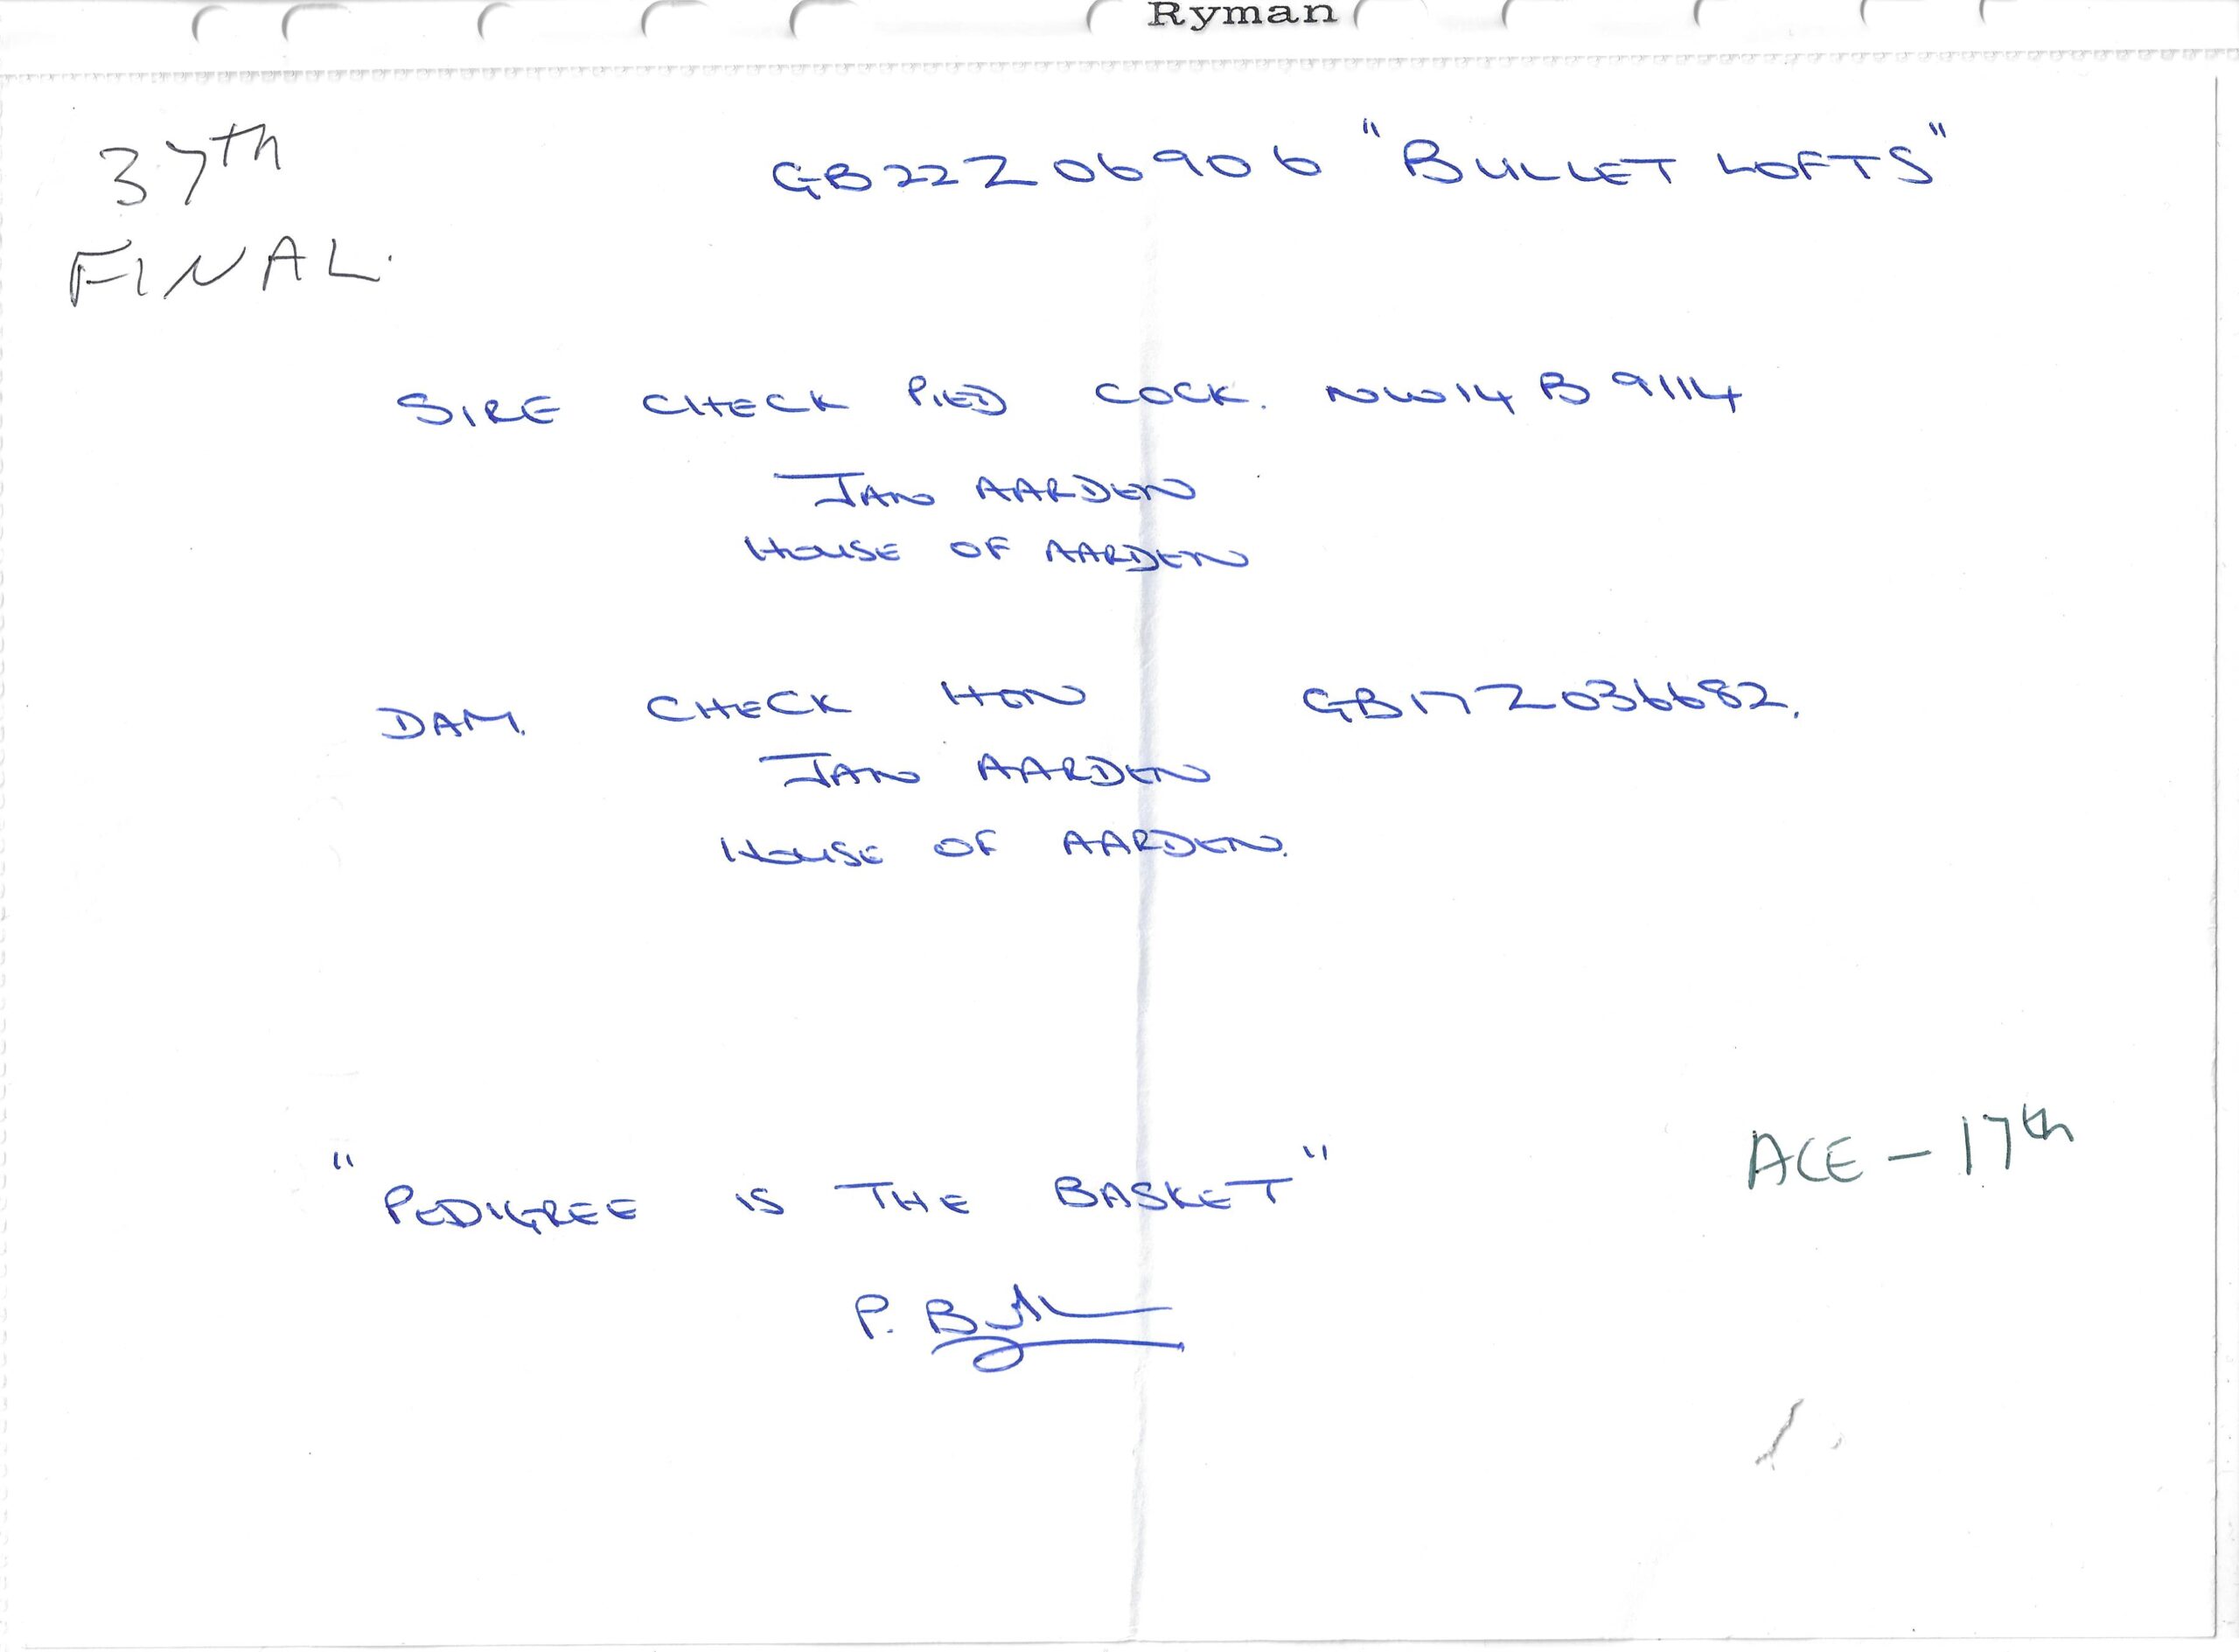 Ryman
37th
FINAL.
GB22Z06906 "BULLET LOFTS"
SIRE CHECK PIED COCK. NW14 B 9114
JAN AARDEN
HOUSE OF AARDEN
DAM. CHECK HEN GB17Z036682.
JAN AARDEN
HOUSE OF AARDEN.
ACE - 17th
"PEDIGREE IS THE BASKET"
P.